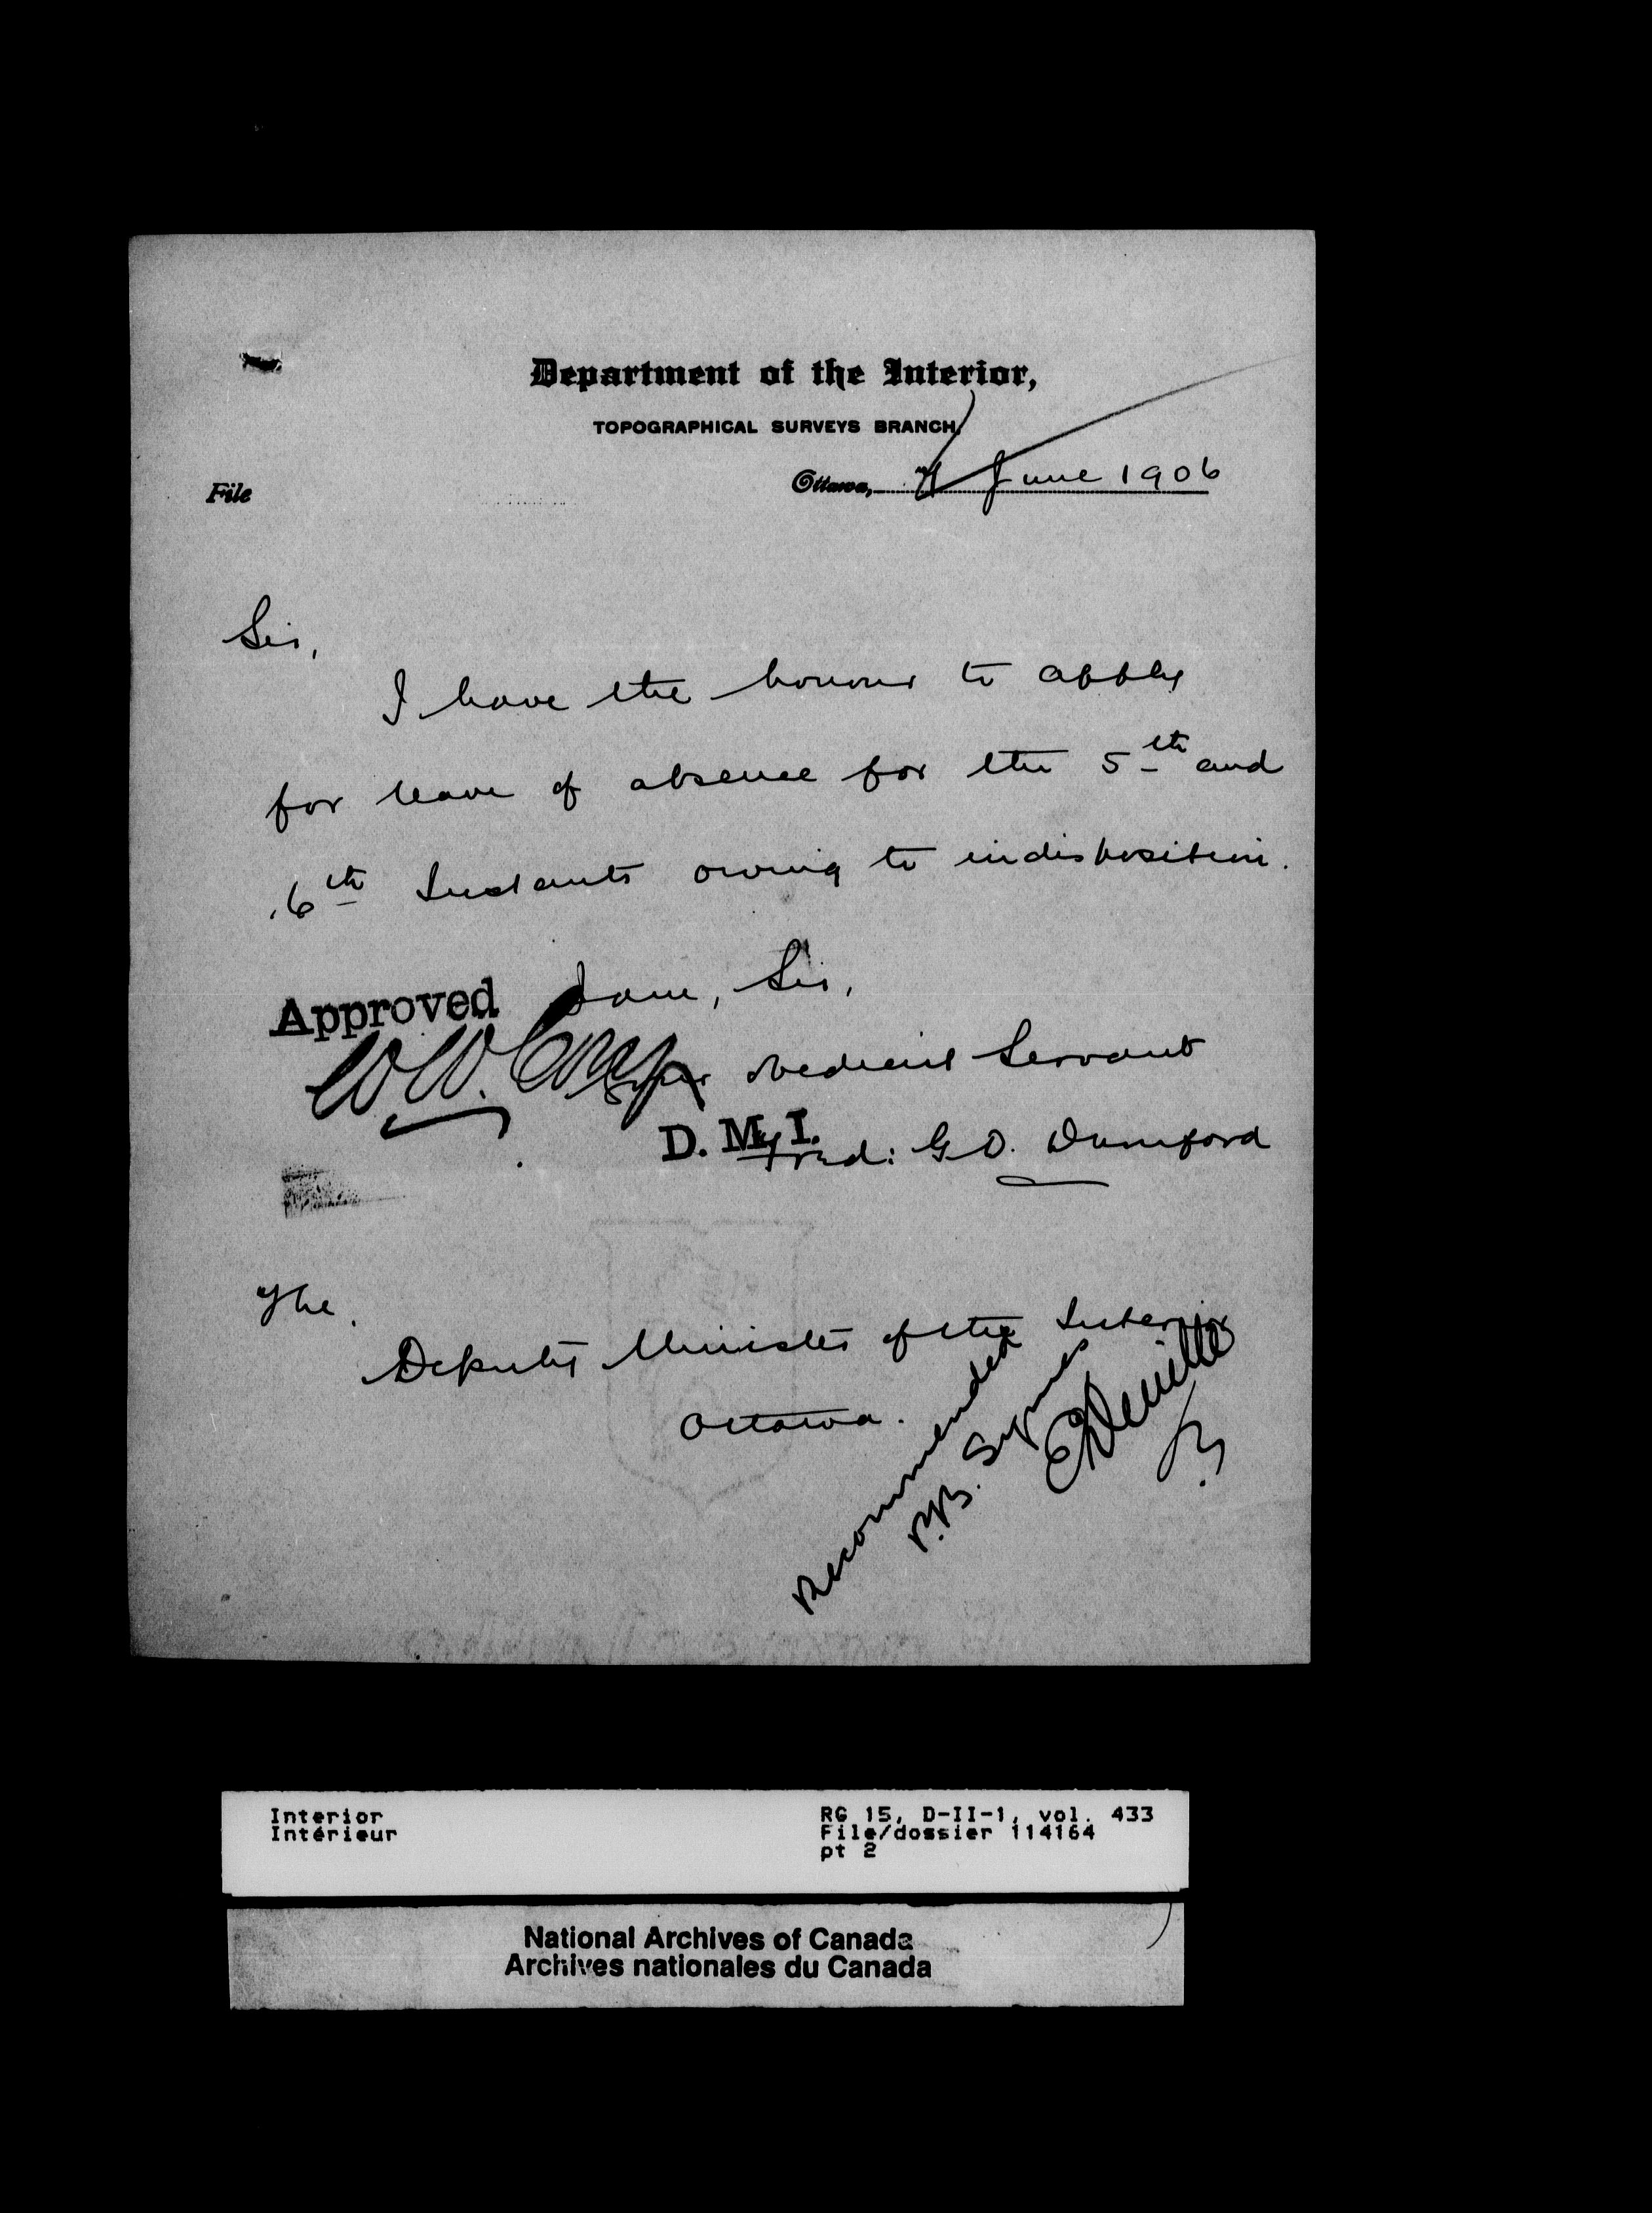 Department of the Interior,
TOPOGRAPHICAL SURVEYS BRANCH,
File
Ottawa, 7 June 1906
Sir,
I have the honour to apply
for leave of absence for the 5th and
6th Instants owing to indisposition.
Approved
I am, Sir,
W. W. Cory
Your obedient Servant
D. M. I.
Fred: G D. Durnford
The
Deputy Minister of the Interior
Ottawa.
Recommended
P.B. Symes
E Deville
Interior
Intérieur
RG 15, D-II-1, vol. 433
File/dossier 114164
pt 2
National Archives of Canada
Archives nationales du Canada